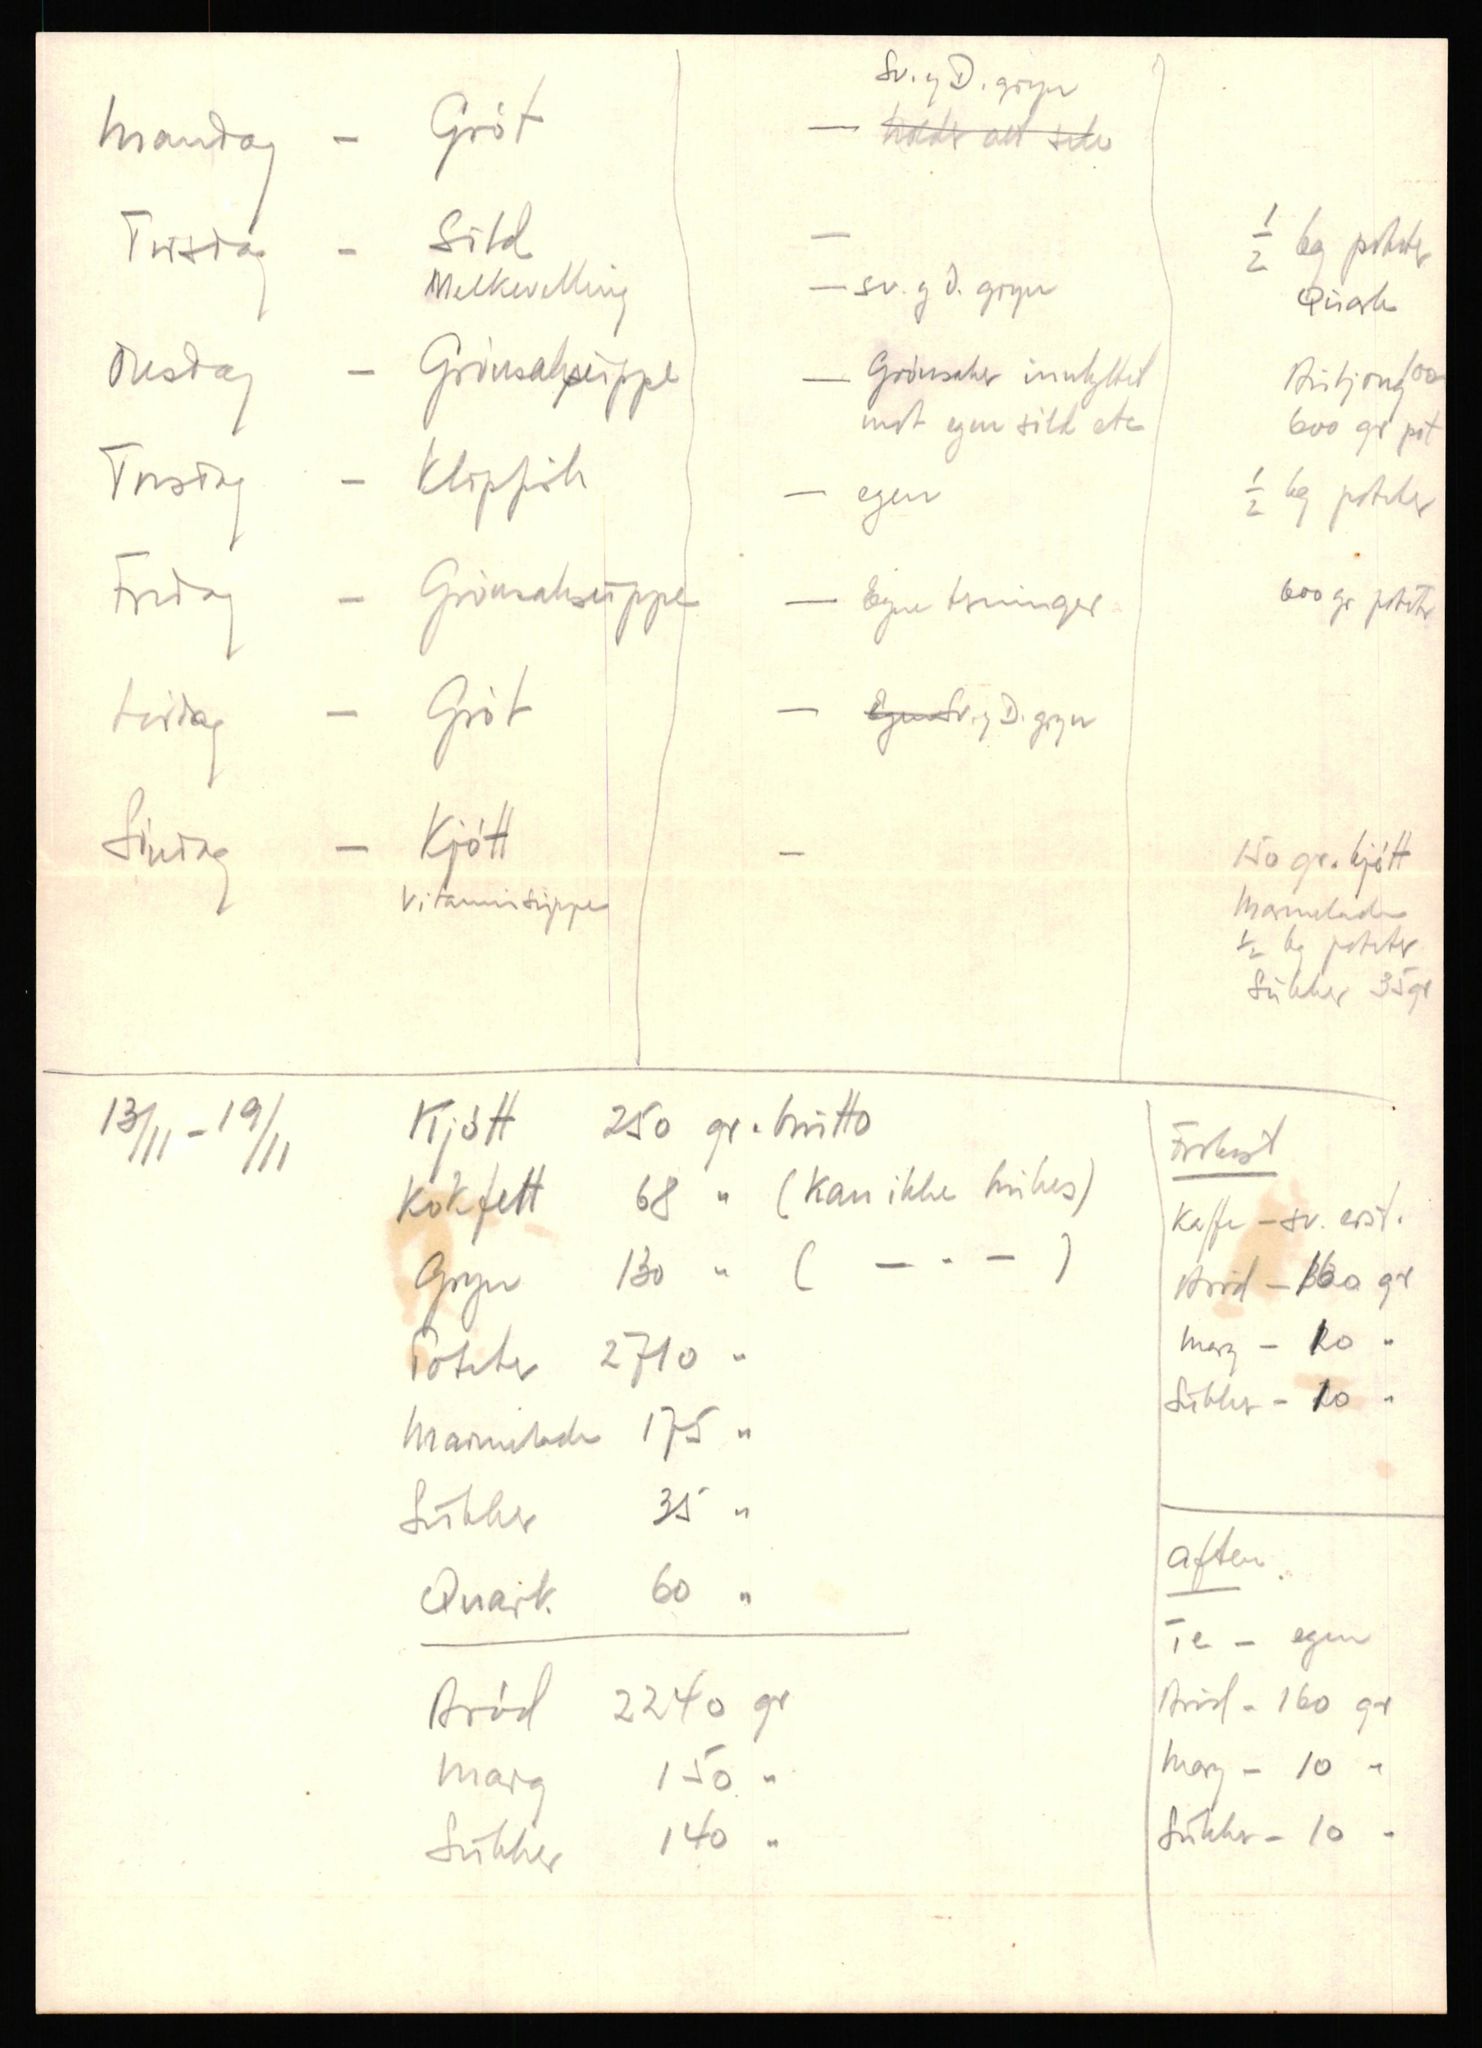 Sv. og D. gryn
Mandag – Gröt –
Tirsdag – Sild – ½ kg poteter
Melkevelling – sv. og D. gryn Quark
Onsdag – Grönsaksuppe – Grönsaker innbyttet
mot egen sild etc 600 gr pot
Torsdag – Klipfisk – egen ½ kg poteter
Fredag – Grönsaksuppe – Egne terninger 600 gr poteter
Lördag – Gröt – Egen Sv. og D. gryn
Söndag – Kjött – 150 gr. kjött
Vitaminsuppe Marmelade
½ kg poteter
Sukker 35 gr
13/11 – 19/11 Kjött 250 gr. brutto
Kokfett 68 " (Kan ikke brukes)
Gryn 130 " ( — " — )
Poteter 2710 "
Marmelade 175 "
Sukker 35 "
Quark 60 "
Bröd 2240 gr
Marg 150 "
Sukker 140 "
Frokost
Kaffe – sv. erst.
Bröd – 160 gr
Marg – 10 "
Sukker – 10 "
Aften.
Te – egen
Bröd – 160 gr
Marg – 10 "
Sukker – 10 "